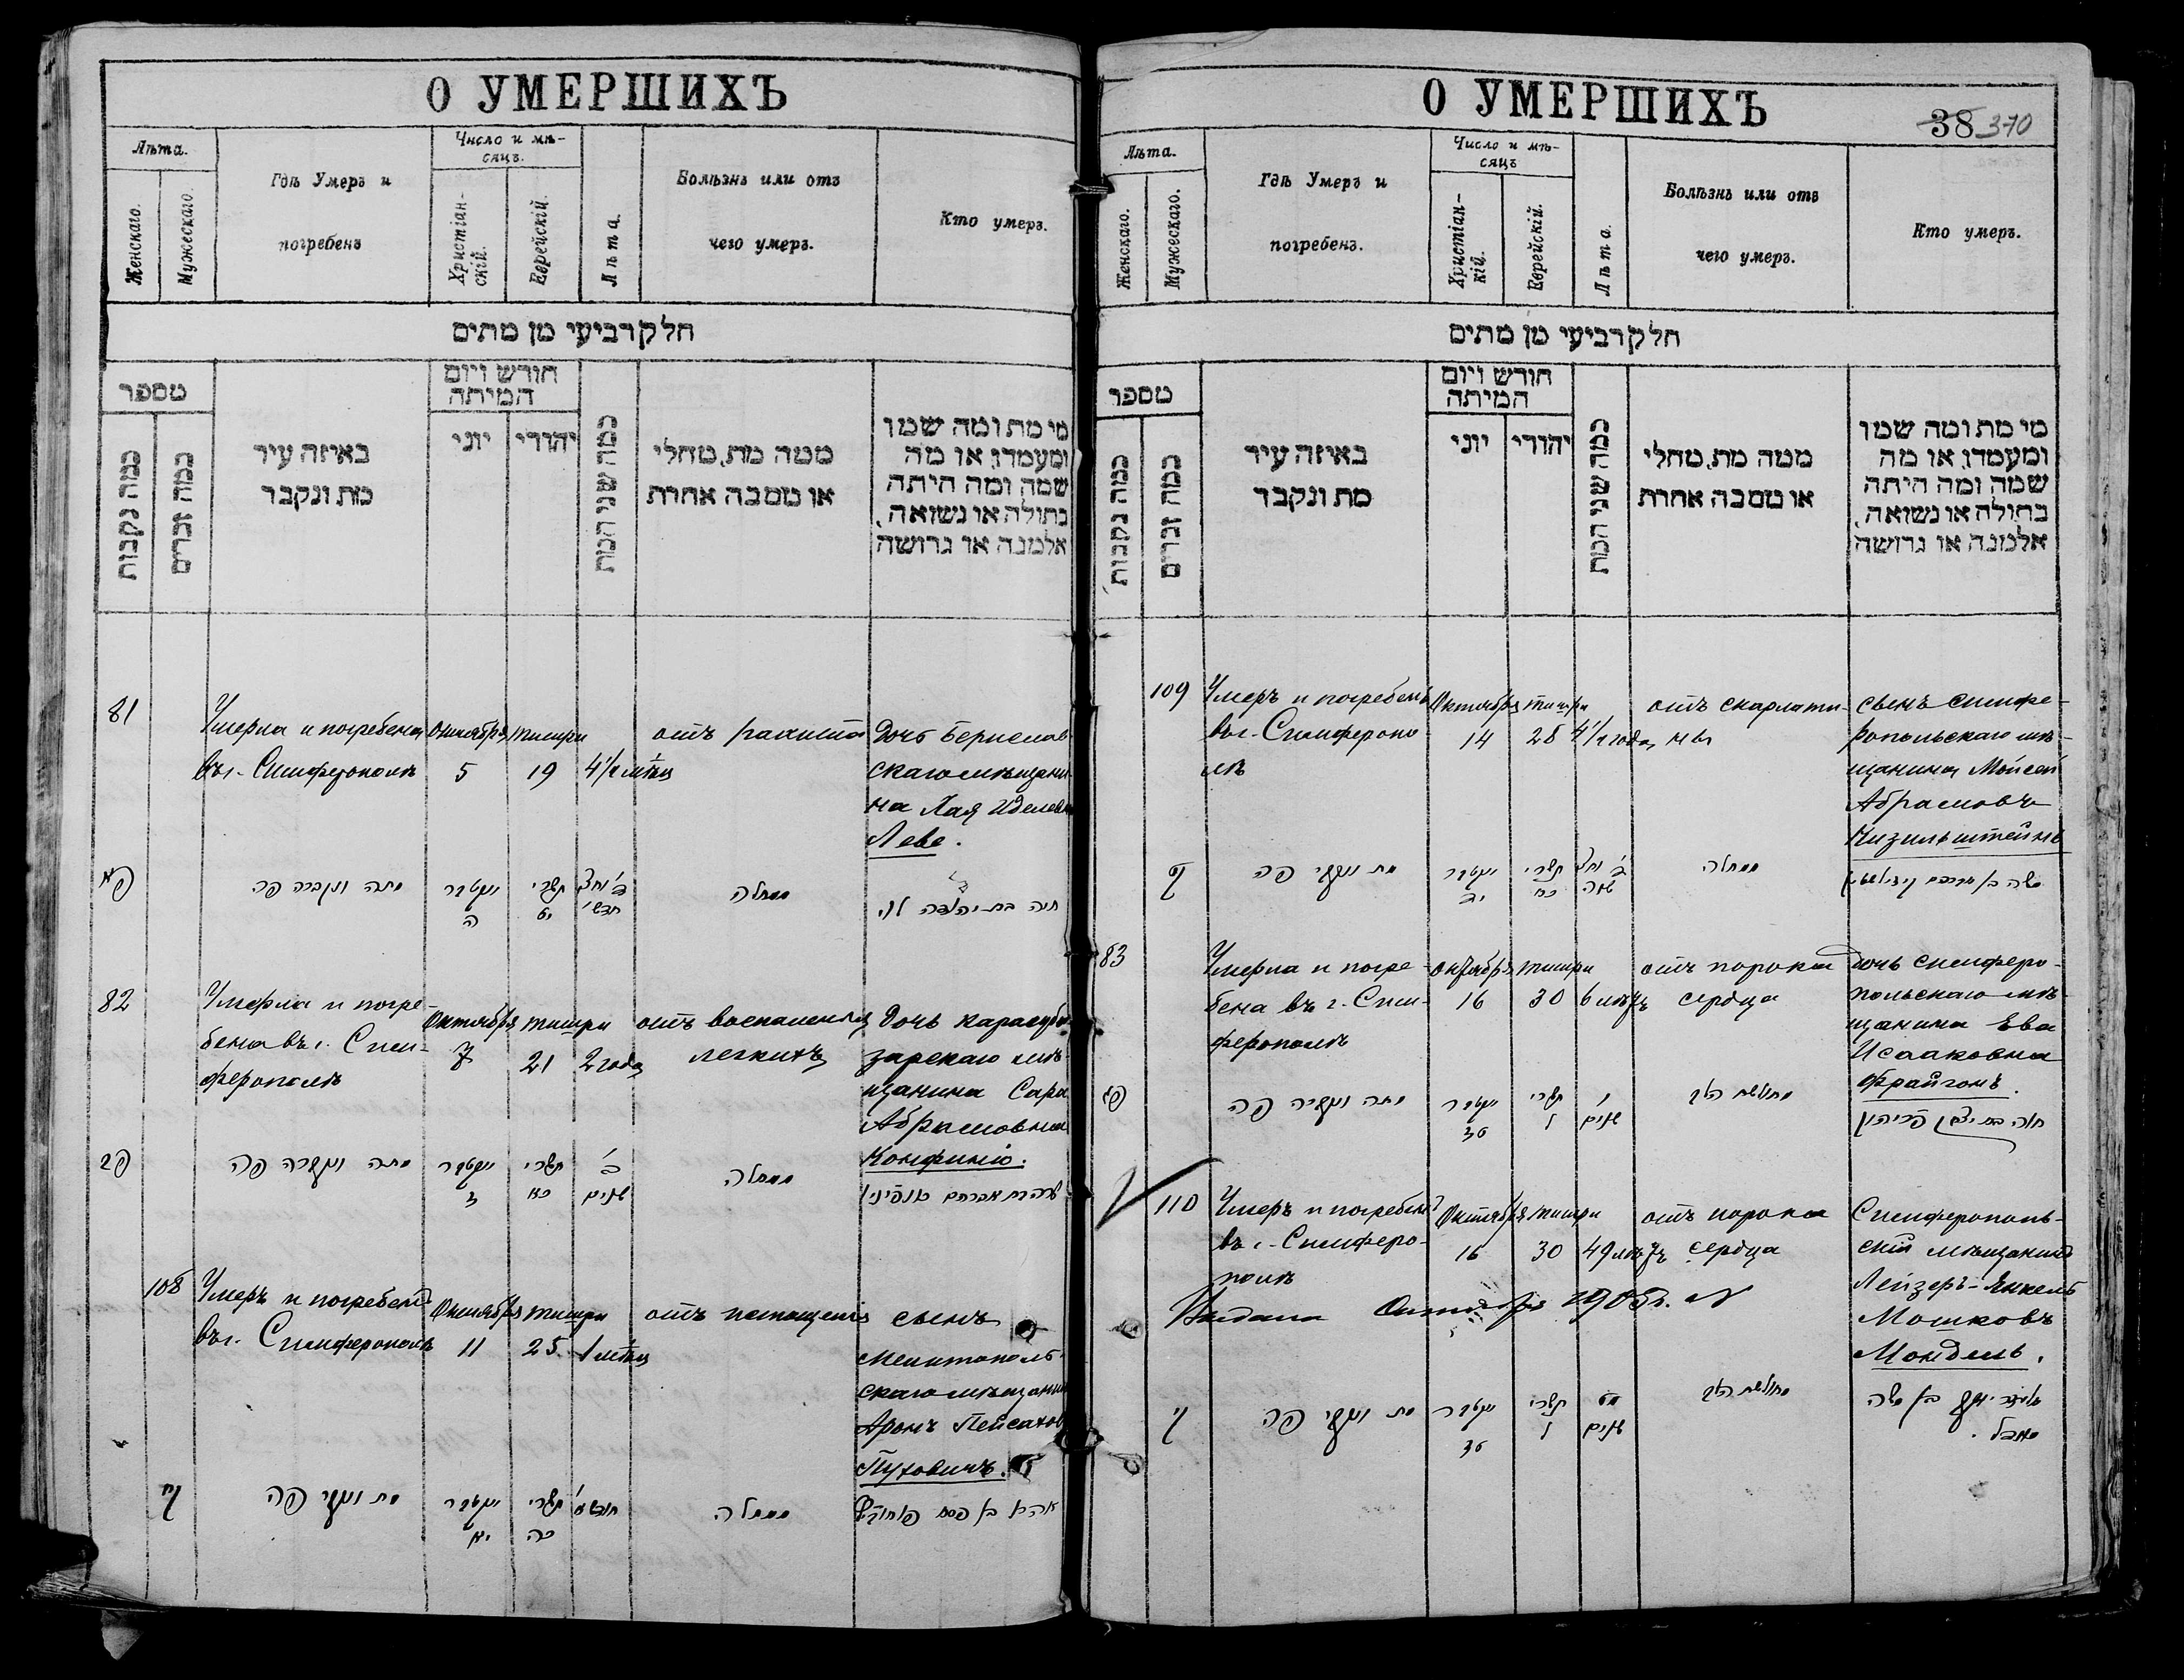 О УМЕРШИХЪ
Лѣта.
Женскаго.
Мужескаго.
Гдѣ Умеръ и
погребенъ
Число и мѣ-
сяцъ.
Христіан-
скій.
Еврейскій.
Лѣта.
Болѣзнь или отъ
чего умеръ.
Кто умеръ.
חלק רביעי מן מתים
מספר
כמה נקבות
כמה זכרים
באיזה עיר
מת ונקבר
חורש ויום
המיתה
יוני
יהודי
כמה שני המת
ממה מת, מחלי
או מסבה אחרת
מי מת ומה שמו
ומעמדו, או מה
שמה ומה היתה
בתולה או נשואה,
אלמנה או גרושה
81
Умерла и погребена
въ г. Симферополѣ
Октября
5
тишри
19
4½ мѣц
отъ рахита
Дочь Берислав
скаго мѣщани
на Хая Иделевн
Леве.
פא
מתה ונקברה פה
אקטבר
ה
תשרי
יט
ד׳ וחצ׳
חדשי׳
ממחלה
חיה בת יהודה לוי
82
Умерла и погре-
бена въ г. Сим-
ферополѣ
Октября
7
тишри
21
2 года
отъ воспаленія
легкихъ
Дочь карасуба
зарскаго мѣ-
щанина Сара
Абрамовна
Конфино.
פב
מתה ונקברה פה
אקטבר
ז
תשרי
כא
ב׳
שנים
ממחלה
שרה בת אברהם קונפינו
108
Умеръ и погребенъ
въ г. Симферополѣ
Октября
11
тишри
25
1 мѣц
отъ истощенія
сынъ
мелитополь-
скаго мѣщанин
Аронъ Пейсахов
Пуховичъ.
קח
מת ונקבר פה
אקטבר
יא
תשרי
כה
חודש א׳
ממחלה
אהרן בן פסח פוחוביץ
О УМЕРШИХЪ
38 370
Лѣта.
Женскаго.
Мужескаго.
Гдѣ Умеръ и
погребенъ.
Число и мѣ-
сяцъ
Христіан-
кій.
Еврейскій.
Лѣта.
Болѣзнь или отъ
чего умеръ.
Кто умеръ.
חלק רביעי מן מתים
מספר
כמה נקבות
כמה זכרים
באיזה עיר
מת ונקבר
חורש ויום
המיתה
יוני
יהודי
כמה שני המת
ממה מת, מחלי
או מסבה אחרת
מי מת ומה שמו
ומעמדו, או מה
שמה ומה היתה
בתולה או נשואה,
אלמנה או גרושה
109
Умеръ и погребенъ
въ г. Симферопо-
лѣ
Октября
14
тишри
28
4½ года
отъ скарлати-
ны
сынъ симфе-
ропольскаго мѣ-
щанина Мойсей
Абрамовъ
Кизильштейнъ
קט
מת ונקבר פה
אקטבר
יד
תשרי
כח
ד׳ וחצ׳
שנה
ממחלה
משה בן אברהם קיזילשטין
83
Умерла и погре-
бена въ г. Сим-
ферополѣ
Октября
16
тишри
30
6 лѣтъ
отъ порока
сердца
дочь симферо-
польскаго мѣ-
щанина Ева
Исааковна
Фрайгонъ.
פג
מתה ונקברה פה
אקטבר
טז
תשרי
ל
ו׳
שנים
מחולשת הלב
חוה בת יצחק
110
Умеръ и погребенъ
въ г. Симферо-
полѣ
Октября
16
тишри
30
49 лѣтъ
отъ порока
сердца
Симферополь-
скій мѣщанинъ
Лейзеръ-Янкель
Мошковъ
Мондель.
Выдана 1905 г.
קי
מת ונקבר פה
אקטבר
טז
תשרי
ל
מט
שנים
מחולשת הלב
אליעזר יעקב בן משה
מאנדל.